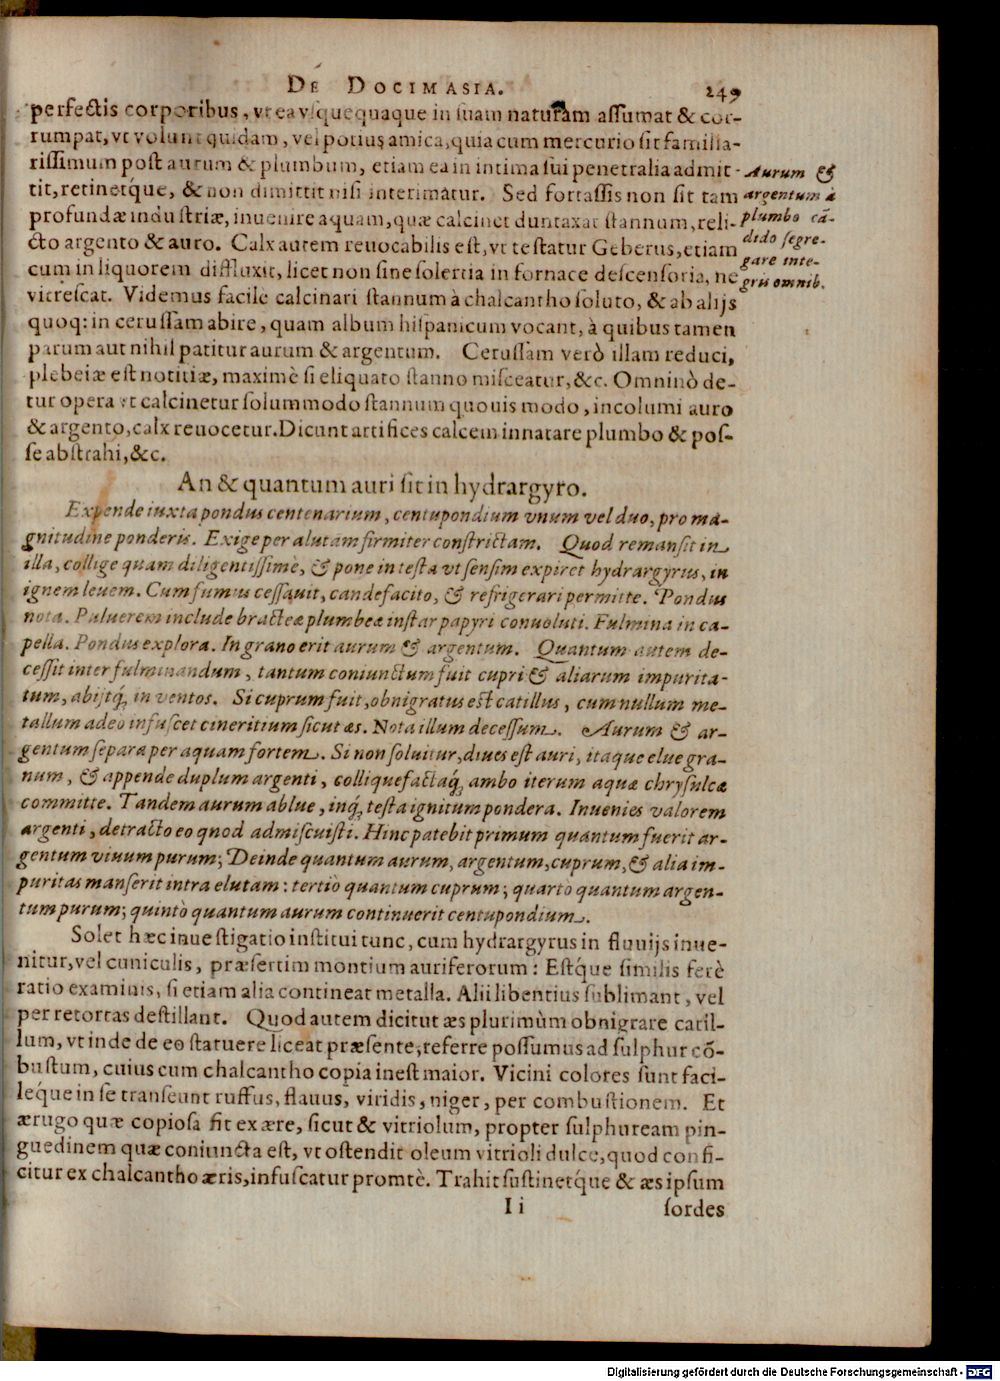 DE DOCIMASIA. 249
perfectis corporibus, vt ea vſquequaque in ſuam naturam aſſumat & cor-
rumpat, vt volunt quidam, vel potius amica, quia cum mercurio ſit familia-
riſſimum poſt aurum & plumbum, etiam ea in intima ſui penetralia admit-
tit, retinetq́ue, & non dimittit niſi interimatur. Sed fortaſſis non ſit tam
profundæ induſtriæ, inuenire aquam, quæ calcinet duntaxat ſtannum, reli-
cto argento & auro. Calx autem reuocabilis eſt, vt teſtatur Geberus, etiam
cum in liquorem diffluxit, licet non ſine ſolertia in fornace deſcenſoria, ne
vitreſcat. Videmus facile calcinari ſtannum à chalcantho ſoluto, & ab alijs
quoq: in ceruſſam abire, quam album hiſpanicum vocant, à quibus tamen
parum aut nihil patitur aurum & argentum. Ceruſſam verò illam reduci,
plebeiæ eſt notitiæ, maximè ſi eliquato ſtanno miſceatur, &c. Omninò de-
tur opera vt calcinetur ſolummodo ſtannum quouis modo, incolumi auro
& argento, calx reuocetur. Dicunt artifices calcem innatare plumbo & poſ-
ſe abſtrahi, &c.
Aurum &
argentum à
plumbo cã-
dido ſegre-
gare inte-
gris omnib.
An & quantum auri ſit in hydrargyro.
Expende iuxta pondus centenarium, centupondium vnum vel duo, pro ma-
gnitudine ponderis. Exige per alutam firmiter conſtrictam. Quod remanſit in
illa, collige quam diligentiſſimè, & pone in teſta vt ſenſim expiret hydrargyrus, in
ignem leuem. Cum fumus ceſſauit, candefacito, & refrigerari permitte. Pondus
nota. Puluerem include bracteæ plumbeæ inſtar papyri conuoluti. Fulmina in ca-
pella. Pondus explora. In grano erit aurum & argentum. Quantum autem de-
ceſſit inter fulminandum, tantum coniunctum fuit cupri & aliarum impurita-
tum, abijtq́, in ventos. Si cuprum fuit, obnigratus eſt catillus, cum nullum me-
tallum adeo infuſcet cineritium ſicut æs. Nota illum deceſſum. Aurum & ar-
gentum ſepara per aquam fortem. Si non ſoluitur, diues eſt auri, itaque elue gra-
num, & appende duplum argenti, colliquefactaq́, ambo iterum aquæ chryſulcæ
committe. Tandem aurum ablue, inq́, teſta ignitum pondera. Inuenies valorem
argenti, detracto eo qnod admiſcuiſti. Hinc patebit primum quantum fuerit ar-
gentum viuum purum; Deinde quantum aurum, argentum, cuprum, & alia im-
puritas manſerit intra elutam: tertiò quantum cuprum; quartò quantum argen-
tum purum; quintò quantum aurum continuerit centupondium.
Solet hæc inueſtigatio inſtitui tunc, cum hydrargyrus in fluuijs inue-
nitur, vel cuniculis, præſertim montium auriferorum: Eſtq́ue ſimilis ferè
ratio examinis, ſi etiam alia contineat metalla. Alii libentius ſublimant, vel
per retortas deſtillant. Quod autem dicitut æs plurimùm obnigrare catil-
lum, vt inde de eo ſtatuere liceat præſente, referre poſſumus ad ſulphur cõ-
buſtum, cuius cum chalcantho copia ineſt maior. Vicini colores ſunt faci-
leq́ue in ſe tranſeunt ruffus, flauus, viridis, niger, per combuſtionem. Et
ærugo quæ copioſa fit ex ære, ſicut & vitriolum, propter ſulphuream pin-
guedinem quæ coniuncta eſt, vt oſtendit oleum vitrioli dulce, quod confi-
citur ex chalcantho æris, infuſcatur promtè. Trahit ſuſtinetq́ue & æs ipſum
I i ſordes
Digitalisierung gefördert durch die Deutsche Forschungsgemeinschaft - DFG